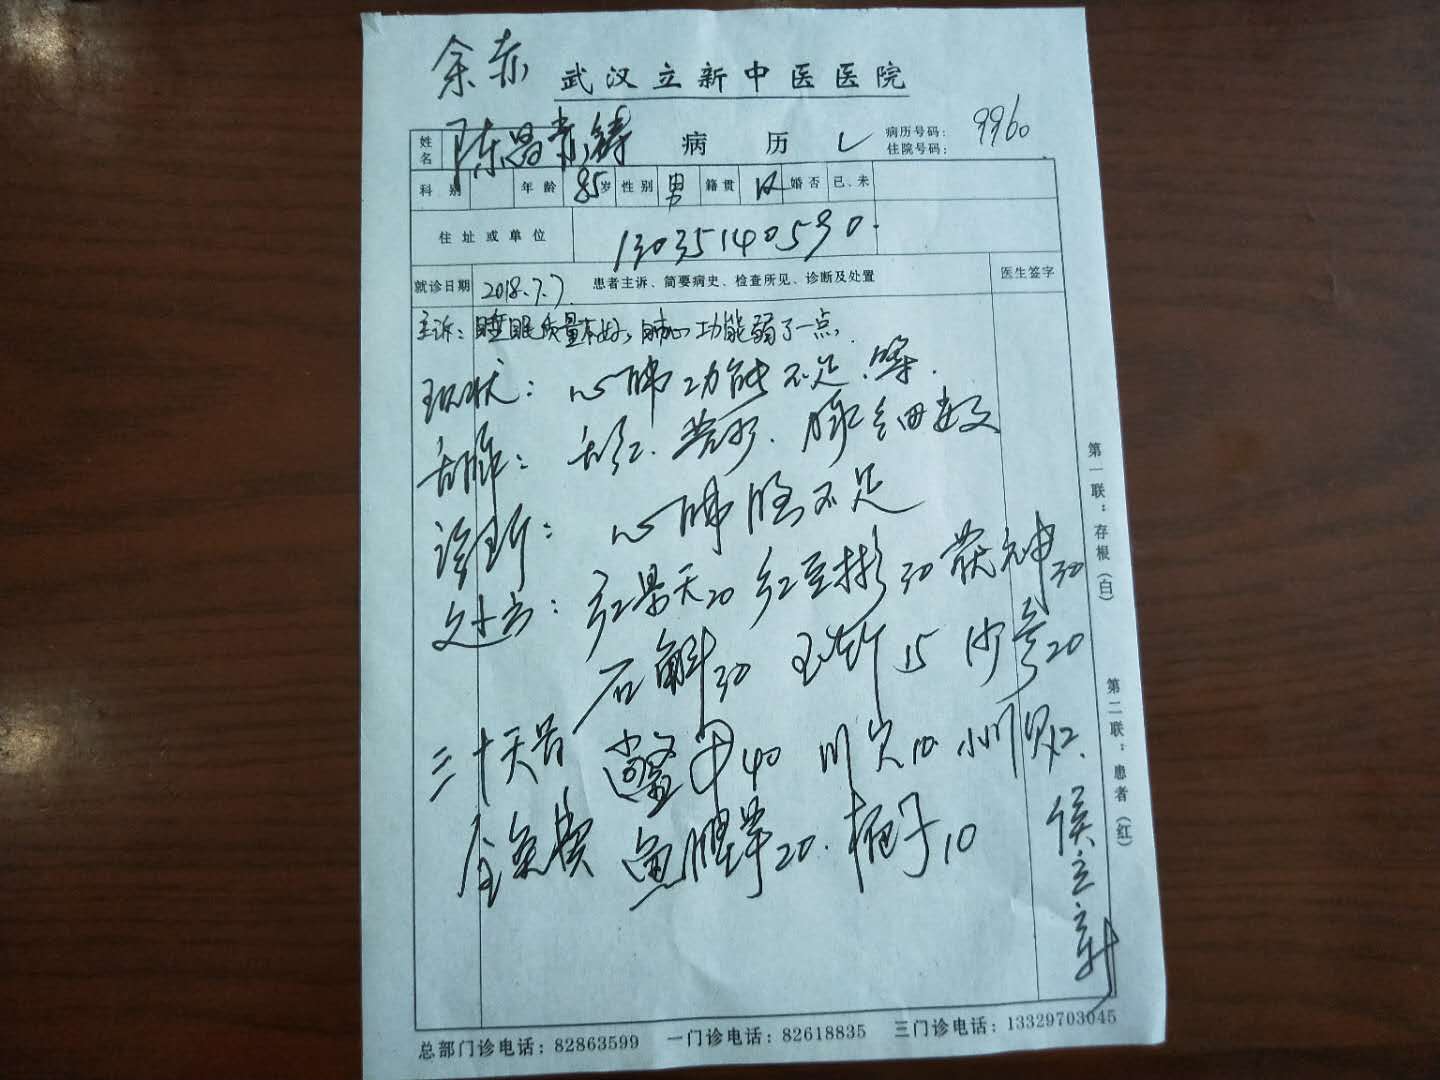 余赤
武汉立新中医医院
姓名 陈 病历 病历号码: 9960
住院号码:
科别 年龄 85岁 性别 男 籍贯 汉 婚否 已、未
住址或单位 13035140590
就诊日期 2018.7.7 患者主诉、简要病史、检查所见、诊断及处置 医生签字
主诉: 睡眠质量不好, 肺心功能弱了一点,
现状: 心肺功能不足.等.
舌脉: 舌红.苔 脉细数
诊断: 心肺 不足
处方: 红景天20 红豆杉30 茯神30
石斛30 玉竹15 沙参20
三十天 鳖甲40
全免费 鱼腥草20. 栀子10
侯立新
第一联:存根(白)
第二联:患者(红)
总部门诊电话: 82863599 一门诊电话: 82618835 三门诊电话: 13329703045